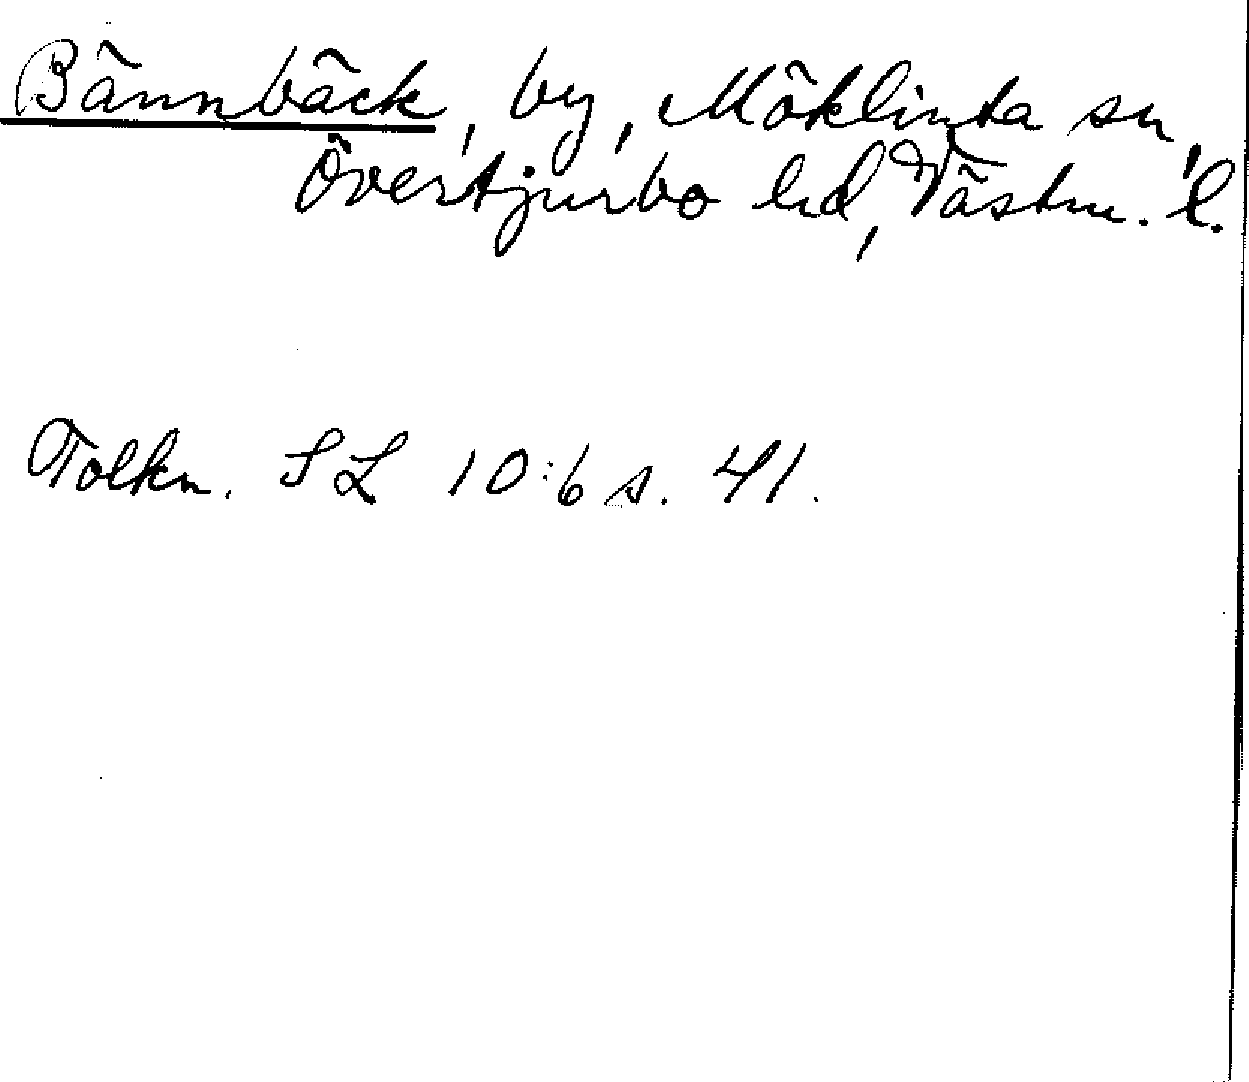 Bännbäck, by, Möklinta sn,
Övertjurbo hd, Västm. l.
Tolkn. SL 10:6 s. 41.